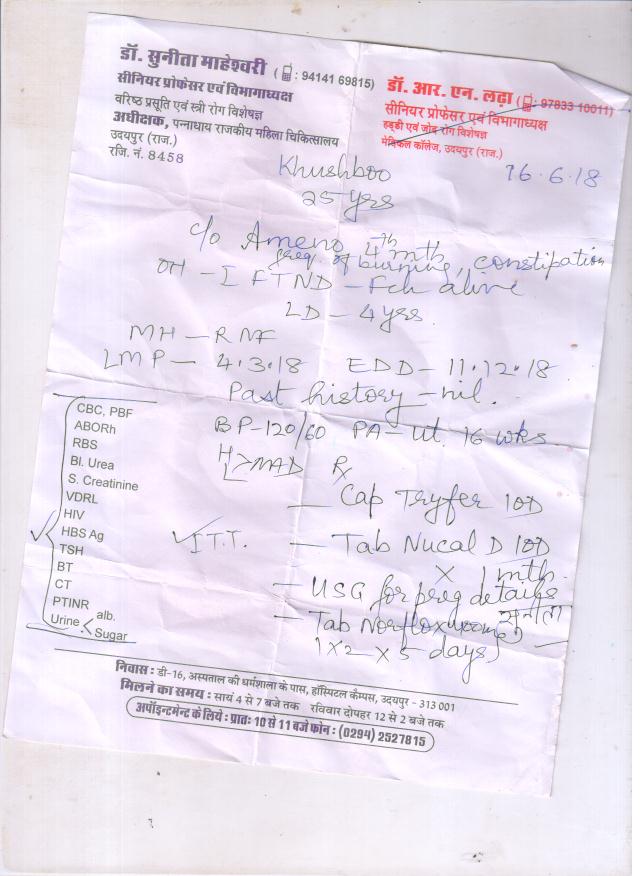 डॉ. सुनीता माहेश्वरी ( : 94141 69815)
सीनियर प्रोफेसर एवं विभागाध्यक्ष
वरिष्ठ प्रसूति एवं स्त्री रोग विशेषज्ञ
अधीक्षक, पन्नाधाय राजकीय महिला चिकित्सालय
उदयपुर (राज.)
रजि. नं. 8458
डॉ. आर. एन. लढ़ा ( : 97833 10011)
सीनियर प्रोफेसर एवं विभागाध्यक्ष
हड्डी एवं जोड़ रोग विशेषज्ञ
मेडिकल कॉलेज, उदयपुर (राज.)
Khushboo 16.6.18
25 yrs
c/o Ameno 4th mth
freq. of burning, constipation
OH - I FTND - Fch alive
LD - 4 yrs.
MH - RNF
LMP - 4.3.18 EDD - 11.12.18
Past history - nil.
BP-120/60 PA - Ut. 16 wks.
H
L > NAD Rx
- Cap Tryfer 1OD
I.T.T. - Tab Nucal D 1OD
X 1 mth.
- USG for preg details
- Tab Norflox
1x2 x 5 days
CBC, PBF
ABORh
RBS
Bl. Urea
S. Creatinine
VDRL
HIV
HBS Ag
TSH
BT
CT
PTINR
Urine < alb.
Sugar
निवास : डी-16, अस्पताल की धर्मशाला के पास, हॉस्पिटल कैम्पस, उदयपुर - 313 001
मिलने का समय : सायं 4 से 7 बजे तक रविवार दोपहर 12 से 2 बजे तक
अपॉइन्टमेन्ट के लिये : प्रातः 10 से 11 बजे फोन : (0294) 2527815